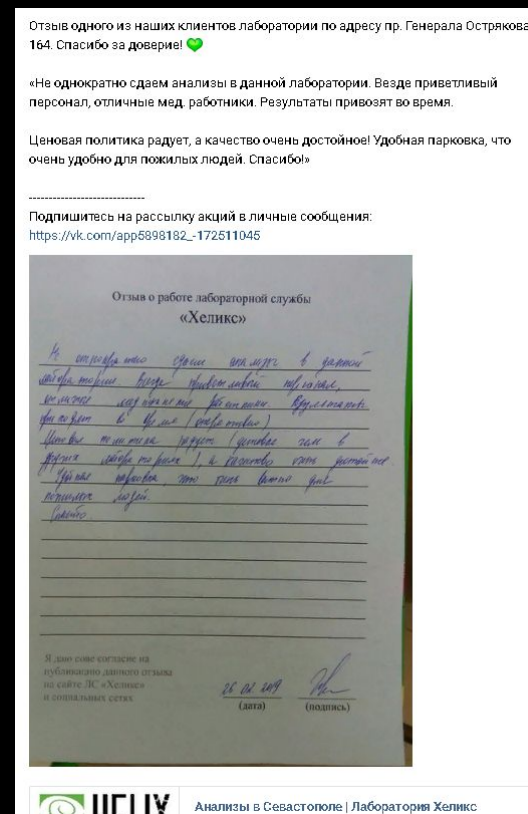 Отзыв одного из наших клиентов лаборатории по адресу пр. Генерала Острякова
164. Спасибо за доверие! 💚
«Не однократно сдаем анализы в данной лаборатории. Везде приветливый
персонал, отличные мед. работники. Результаты привозят во время.
Ценовая политика радует, а качество очень достойное! Удобная парковка, что
очень удобно для пожилых людей. Спасибо!»
-----------------------------
Подпишитесь на рассылку акций в личные сообщения:
https://vk.com/app5898182_-172511045
Отзыв о работе лабораторной службы
«Хеликс»
Не однократно сдаем анализы в данной
лаборатории. Везде приветливый персонал,
отличные работники. Результаты
в время (оперативно)
Ценовая политика радует (дешевле чем в
других лабораториях), а качество очень достойное.
Удобная парковка, что очень важно для
пожилых людей.
Спасибо.
Я даю свое согласие на
публикацию данного отзыва
на сайте ЛС «Хеликс»
и социальных сетях
26 02 2019
(дата) (подпись)
HELIX Анализы в Севастополе | Лаборатория Хеликс